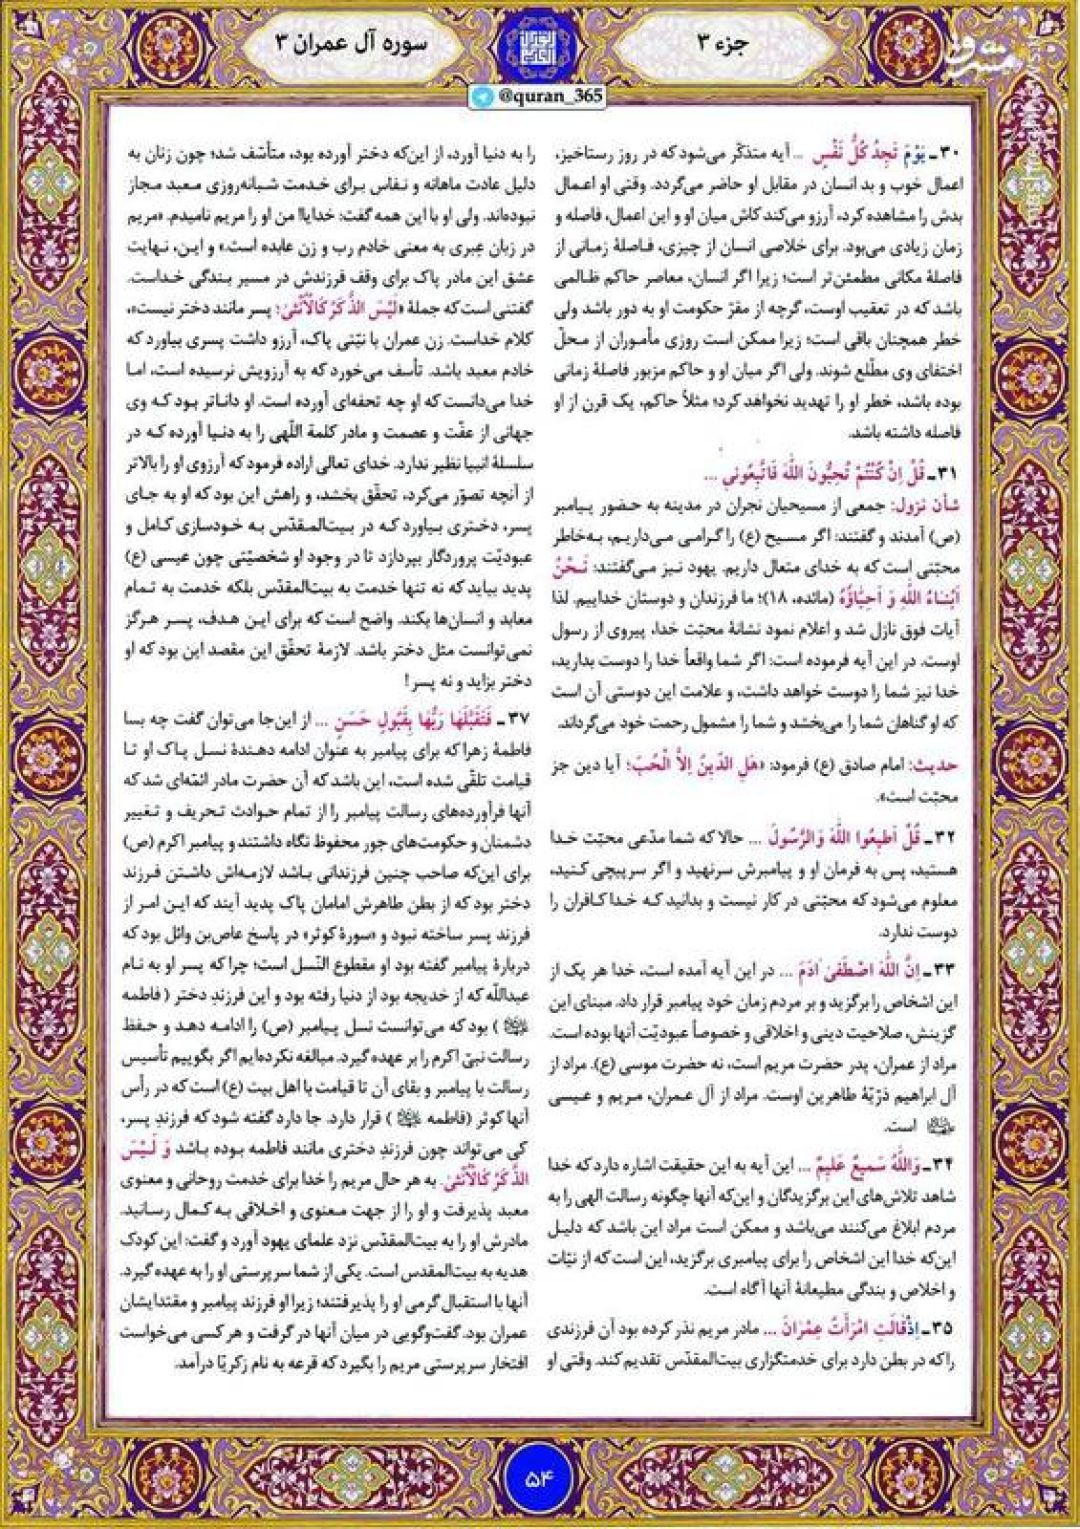 جزء ۳
سوره آل عمران ۳
@quran_365
مشرق
۳۰ـ یَوْمَ تَجِدُ کُلُّ نَفْسٍ ... آیه متذکّر می‌شود که در روز رستاخیز،
اعمال خوب و بد انسان در مقابل او حاضر می‌گردد. وقتی او اعمال
بدش را مشاهده کرد، آرزو می‌کند کاش میان او و این اعمال، فاصله و
زمان زیادی می‌بود. برای خلاصی انسان از چیزی، فاصلهٔ زمانی از
فاصلهٔ مکانی مطمئن‌تر است؛ زیرا اگر انسان، معاصر حاکم ظالمی
باشد که در تعقیب اوست، گرچه از مقرّ حکومت او به دور باشد ولی
خطر همچنان باقی است؛ زیرا ممکن است روزی مأموران از محلّ
اختفای وی مطّلع شوند. ولی اگر میان او و حاکم مزبور فاصلهٔ زمانی
بوده باشد، خطر او را تهدید نخواهد کرد؛ مثلاً حاکم، یک قرن از او
فاصله داشته باشد.
۳۱ـ قُلْ اِنْ کُنْتُمْ تُحِبُّونَ اللّٰهَ فَاتَّبِعُونی ...
شأن نزول: جمعی از مسیحیان نجران در مدینه به حضور پیامبر
(ص) آمدند و گفتند: اگر مسیح (ع) را گرامی می‌داریم، به‌خاطر
محبّتی است که به خدای متعال داریم. یهود نیز می‌گفتند: نَحْنُ
اَبْناءُ اللّٰهِ وَ اَحِبّاؤُهُ (مائده، ۱۸)؛ ما فرزندان و دوستان خداییم. لذا
آیات فوق نازل شد و اعلام نمود نشانهٔ محبّت خدا، پیروی از رسول
اوست. در این آیه فرموده است: اگر شما واقعاً خدا را دوست بدارید،
خدا نیز شما را دوست خواهد داشت، و علامت این دوستی آن است
که او گناهان شما را می‌بخشد و شما را مشمول رحمت خود می‌گرداند.
حدیث: امام صادق (ع) فرمود: «هَلِ الدّینُ اِلاَّ الْحُبّ؛ آیا دین جز
محبّت است».
۳۲ـ قُلْ اَطیعُوا اللّٰهَ وَالرَّسُولَ ... حالا که شما مدّعی محبّت خدا
هستید، پس به فرمان او و پیامبرش سرنهید و اگر سرپیچی کنید،
معلوم می‌شود که محبّتی در کار نیست و بدانید که خدا کافران را
دوست ندارد.
۳۳ـ اِنَّ اللّٰهَ اصْطَفیٰ اٰدَمَ ... در این آیه آمده است، خدا هر یک از
این اشخاص را برگزید و بر مردم زمان خود پیامبر قرار داد. مبنای این
گزینش، صلاحیت دینی و اخلاقی و خصوصاً عبودیّت آنها بوده است.
مراد از عمران، پدر حضرت مریم است، نه حضرت موسی (ع). مراد از
آل ابراهیم ذرّیّهٔ طاهرین اوست. مراد از آل عمران، مریم و عیسی
است.
۳۴ـ وَاللّٰهُ سَمیعٌ عَلیمٌ ... این آیه به این حقیقت اشاره دارد که خدا
شاهد تلاش‌های این برگزیدگان و این‌که آنها چگونه رسالت الهی را به
مردم ابلاغ می‌کنند می‌باشد و ممکن است مراد این باشد که دلیل
این‌که خدا این اشخاص را برای پیامبری برگزید، این است که از نیّات
و اخلاص و بندگی مطیعانهٔ آنها آگاه است.
۳۵ـ اِذْ قالَتِ امْرَأَتُ عِمْرانَ ... مادر مریم نذر کرده بود آن فرزندی
را که در بطن دارد برای خدمتگزاری بیت‌المقدّس تقدیم کند. وقتی او
را به دنیا آورد، از این‌که دختر آورده بود، متأسّف شد؛ چون زنان به
دلیل عادت ماهانه و نفاس برای خدمت شبانه‌روزی معبد مجاز
نبوده‌اند. ولی او با این همه گفت: خدایا! من او را مریم نامیدم. «مریم
در زبان عِبری به معنی خادم رب و زن عابده است.» و این، نهایت
عشق این مادر پاک برای وقف فرزندش در مسیر بندگی خداست.
گفتنی است که جملهٔ «لَیْسَ الذَّکَرُ کَالْاُنْثیٰ؛ پسر مانند دختر نیست»،
کلام خداست. زن عمران با نیّتی پاک، آرزو داشت پسری بیاورد که
خادم معبد باشد. تأسف می‌خورد که به آرزویش نرسیده است، اما
خدا می‌دانست که او چه تحفه‌ای آورده است. او داناتر بود که وی
جهانی از عفّت و عصمت و مادر کلمة اللّهی را به دنیا آورده که در
سلسلهٔ انبیا نظیر ندارد. خدای تعالی اراده فرمود که آرزوی او را بالاتر
از آنچه تصوّر می‌کرد، تحقّق بخشد، و راهش این بود که او به جای
پسر، دختری بیاورد که در بیت‌المقدّس به خودسازی کامل و
عبودیّت پروردگار بپردازد تا در وجود او شخصیّتی چون عیسی (ع)
پدید بیاید که نه تنها خدمت به بیت‌المقدّس بلکه خدمت به تمام
معابد و انسان‌ها بکند. واضح است که برای این هدف، پسر هرگز
نمی‌توانست مثل دختر باشد. لازمهٔ تحقّق این مقصد این بود که او
دختر بزاید و نه پسر!
۳۷ـ فَتَقَبَّلَهَا رَبُّهَا بِقَبُولٍ حَسَنٍ ... از این‌جا می‌توان گفت چه بسا
فاطمهٔ زهرا که برای پیامبر به عنوان ادامه دهندهٔ نسل پاک او تا
قیامت تلقّی شده است، این باشد که آن حضرت مادر ائمّه‌ای شد که
آنها فرآورده‌های رسالت پیامبر را از تمام حوادث تحریف و تغییر
دشمنان و حکومت‌های جور محفوظ نگاه داشتند و پیامبر اکرم (ص)
برای این‌که صاحب چنین فرزندانی باشد لازمه‌اش داشتن فرزند
دختر بود که از بطن طاهرش امامان پاک پدید آیند که این امر از
فرزند پسر ساخته نبود و «سورهٔ کوثر» در پاسخ عاص‌بن وائل بود که
دربارهٔ پیامبر گفته بود او مقطوع النّسل است؛ چرا که پسر او به نام
عبداللّه که از خدیجه بود از دنیا رفته بود و این فرزندِ دختر (فاطمه
) بود که می‌توانست نسل پیامبر (ص) را ادامه دهد و حفظ
رسالت نبیّ اکرم را بر عهده گیرد. مبالغه نکرده‌ایم اگر بگوییم تأسیس
رسالت با پیامبر و بقای آن تا قیامت با اهل بیت (ع) است که در رأس
آنها کوثر (فاطمه ) قرار دارد. جا دارد گفته شود که فرزندِ پسر،
کی می‌تواند چون فرزندِ دختری مانند فاطمه بوده باشد وَ لَیْسَ
الذَّکَرُ کَالْاُنْثیٰ. به هر حال مریم را خدا برای خدمت روحانی و معنوی
معبد پذیرفت و او را از جهت معنوی و اخلاقی به کمال رسانید.
مادرش او را به بیت‌المقدّس نزد علمای یهود آورد و گفت: این کودک
هدیه به بیت‌المقدس است. یکی از شما سرپرستی او را به عهده گیرد.
آنها با استقبال گرمی او را پذیرفتند؛ زیرا او فرزند پیامبر و مقتدایشان
عمران بود. گفت‌وگویی در میان آنها در گرفت و هر کسی می‌خواست
افتخار سرپرستی مریم را بگیرد که قرعه به نام زکریّا درآمد.
۵۴